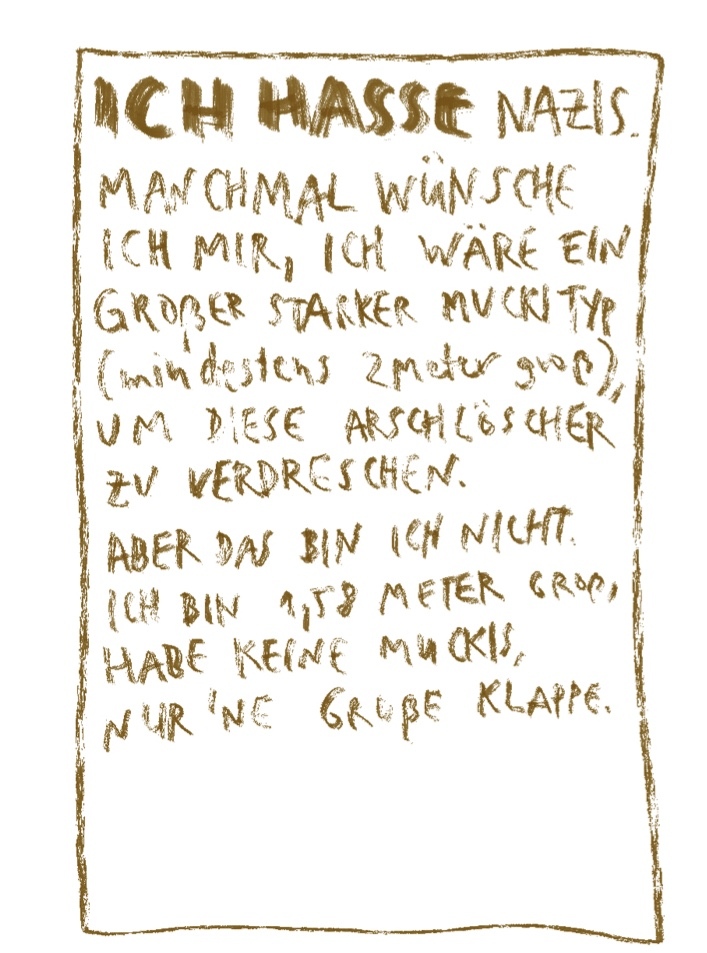 ICH HASSE NAZIS.
MANCHMAL WÜNSCHE
ICH MIR, ICH WÄRE EIN
GROßER STARKER MUCKITYP
(mindestens 2meter groß),
UM DIESE ARSCHLÖSCHER
ZU VERDRESCHEN.
ABER DAS BIN ICH NICHT.
ICH BIN 1,58 METER GROß,
HABE KEINE MUCKIS,
NUR 'NE GROßE KLAPPE.